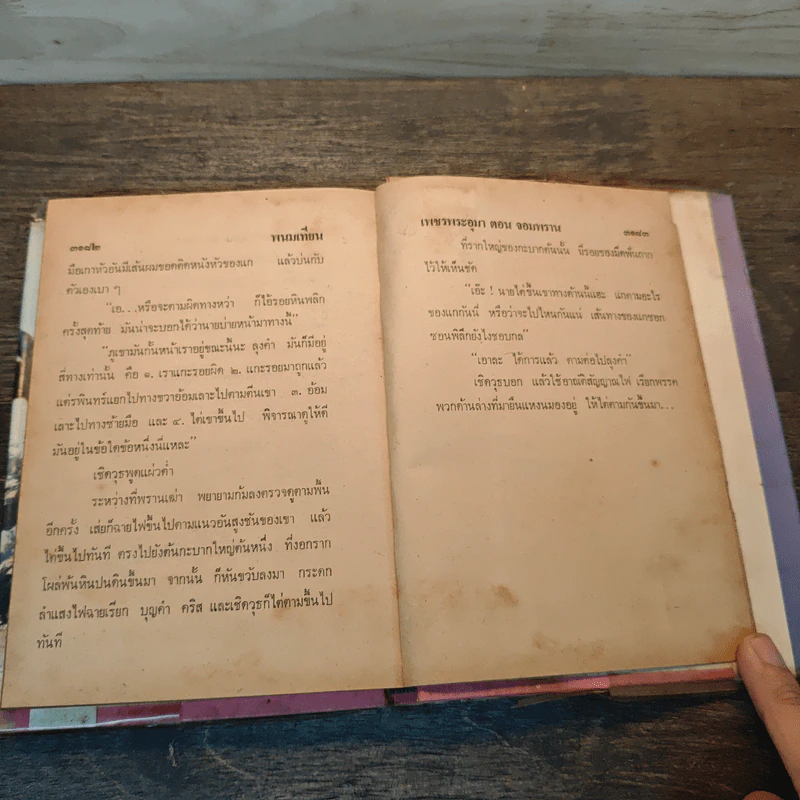 ๓๑๘๒ พนมเทียน
มือเกาหัวอันมีเส้นผมขอดติดหนังหัวของแก แล้วบ่นกับ
ตัวเองเบา ๆ
“เอ...หรือจะตามผิดทางหว่า ก็ไอ้รอยหินพลิก
ครั้งสุดท้าย มันน่าจะบอกได้ว่านายบ่ายหน้ามาทางนี้”
“ภูเขามันกั้นหน้าเราอยู่ขณะนี้นะ ลุงคำ มันก็มีอยู่
สี่ทางเท่านั้น คือ ๑. เราแกะรอยผิด ๒. แกะรอยมาถูกแล้ว
แต่รพินทร์แยกไปทางขวาอ้อมเลาะไปตามตีนเขา ๓. อ้อม
เลาะไปทางซ้ายมือ และ ๔. ไต่เขาขึ้นไป พิจารณาดูให้ดี
มันอยู่ในข้อใดข้อหนึ่งนี่แหละ”
เชิดวุธพูดแผ่วต่ำ
ระหว่างที่พรานเฒ่า พยายามก้มลงตรวจดูตามพื้น
อีกครั้ง เส่ยก็ฉายไฟขึ้นไปตามแนวอันสูงชันของเขา แล้ว
ไต่ขึ้นไปทันที ตรงไปยังต้นกะบากใหญ่ต้นหนึ่ง ที่งอกราก
โผล่พ้นหินปนดินขึ้นมา จากนั้น ก็หันขวับลงมา กระดก
ลำแสงไฟฉายเรียก บุญคำ คริส และเชิดวุธก็ไต่ตามขึ้นไป
ทันที
เพชรพระอุมา ตอน จอมพราน ๓๑๘๓
ที่รากใหญ่ของกะบากต้นนั้น มีรอยของมีดฟันถาก
ไว้ให้เห็นชัด
“เอ๊ะ ! นายไต่ขึ้นเขาทางด้านนี้แฮะ แกตามอะไร
ของแกกันนี่ หรือว่าจะไปไหนกันแน่ เส้นทางของแกซอก
ซอนพิลึกยังไงชอบกล”
“เอาละ ได้การแล้ว ตามต่อไปลุงคำ”
เชิดวุธบอก แล้วใช้อาณัติสัญญาณไฟ เรียกพรรค
พวกด้านล่างที่มายืนแหงนมองอยู่ ให้ไต่ตามกันขึ้นมา...